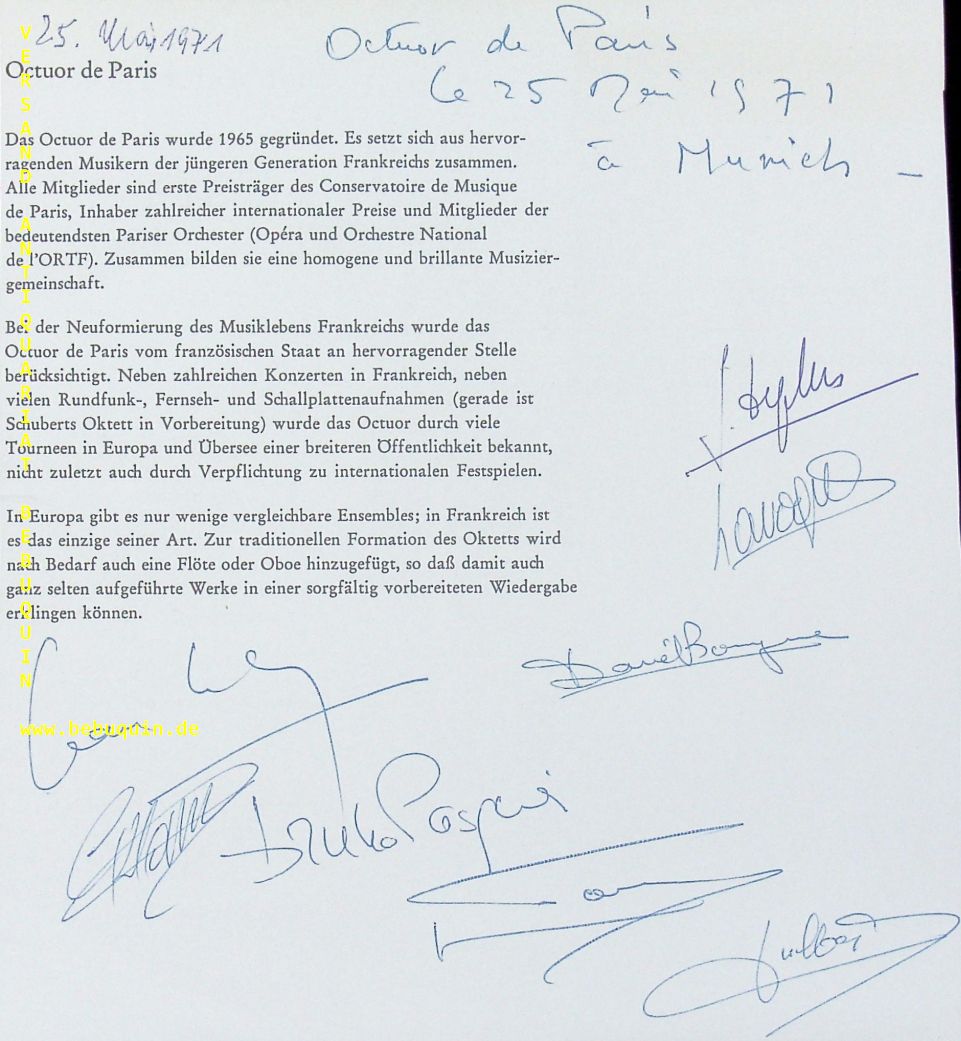 25. Mai 1971
Octuor de Paris
le 25 Mai 1971
à Munich –
Octuor de Paris
Das Octuor de Paris wurde 1965 gegründet. Es setzt sich aus hervor-
ragenden Musikern der jüngeren Generation Frankreichs zusammen.
Alle Mitglieder sind erste Preisträger des Conservatoire de Musique
de Paris, Inhaber zahlreicher internationaler Preise und Mitglieder der
bedeutendsten Pariser Orchester (Opéra und Orchestre National
de l'ORTF). Zusammen bilden sie eine homogene und brillante Musizier-
gemeinschaft.
Bei der Neuformierung des Musiklebens Frankreichs wurde das
Octuor de Paris vom französischen Staat an hervorragender Stelle
berücksichtigt. Neben zahlreichen Konzerten in Frankreich, neben
vielen Rundfunk-, Fernseh- und Schallplattenaufnahmen (gerade ist
Schuberts Oktett in Vorbereitung) wurde das Octuor durch viele
Tourneen in Europa und Übersee einer breiteren Öffentlichkeit bekannt,
nicht zuletzt auch durch Verpflichtung zu internationalen Festspielen.
In Europa gibt es nur wenige vergleichbare Ensembles; in Frankreich ist
es das einzige seiner Art. Zur traditionellen Formation des Oktetts wird
nach Bedarf auch eine Flöte oder Oboe hinzugefügt, so daß damit auch
ganz selten aufgeführte Werke in einer sorgfältig vorbereiteten Wiedergabe
erklingen können.
VERSAND ANTIQUARIAT BEBUQUIN
www.bebuquin.de